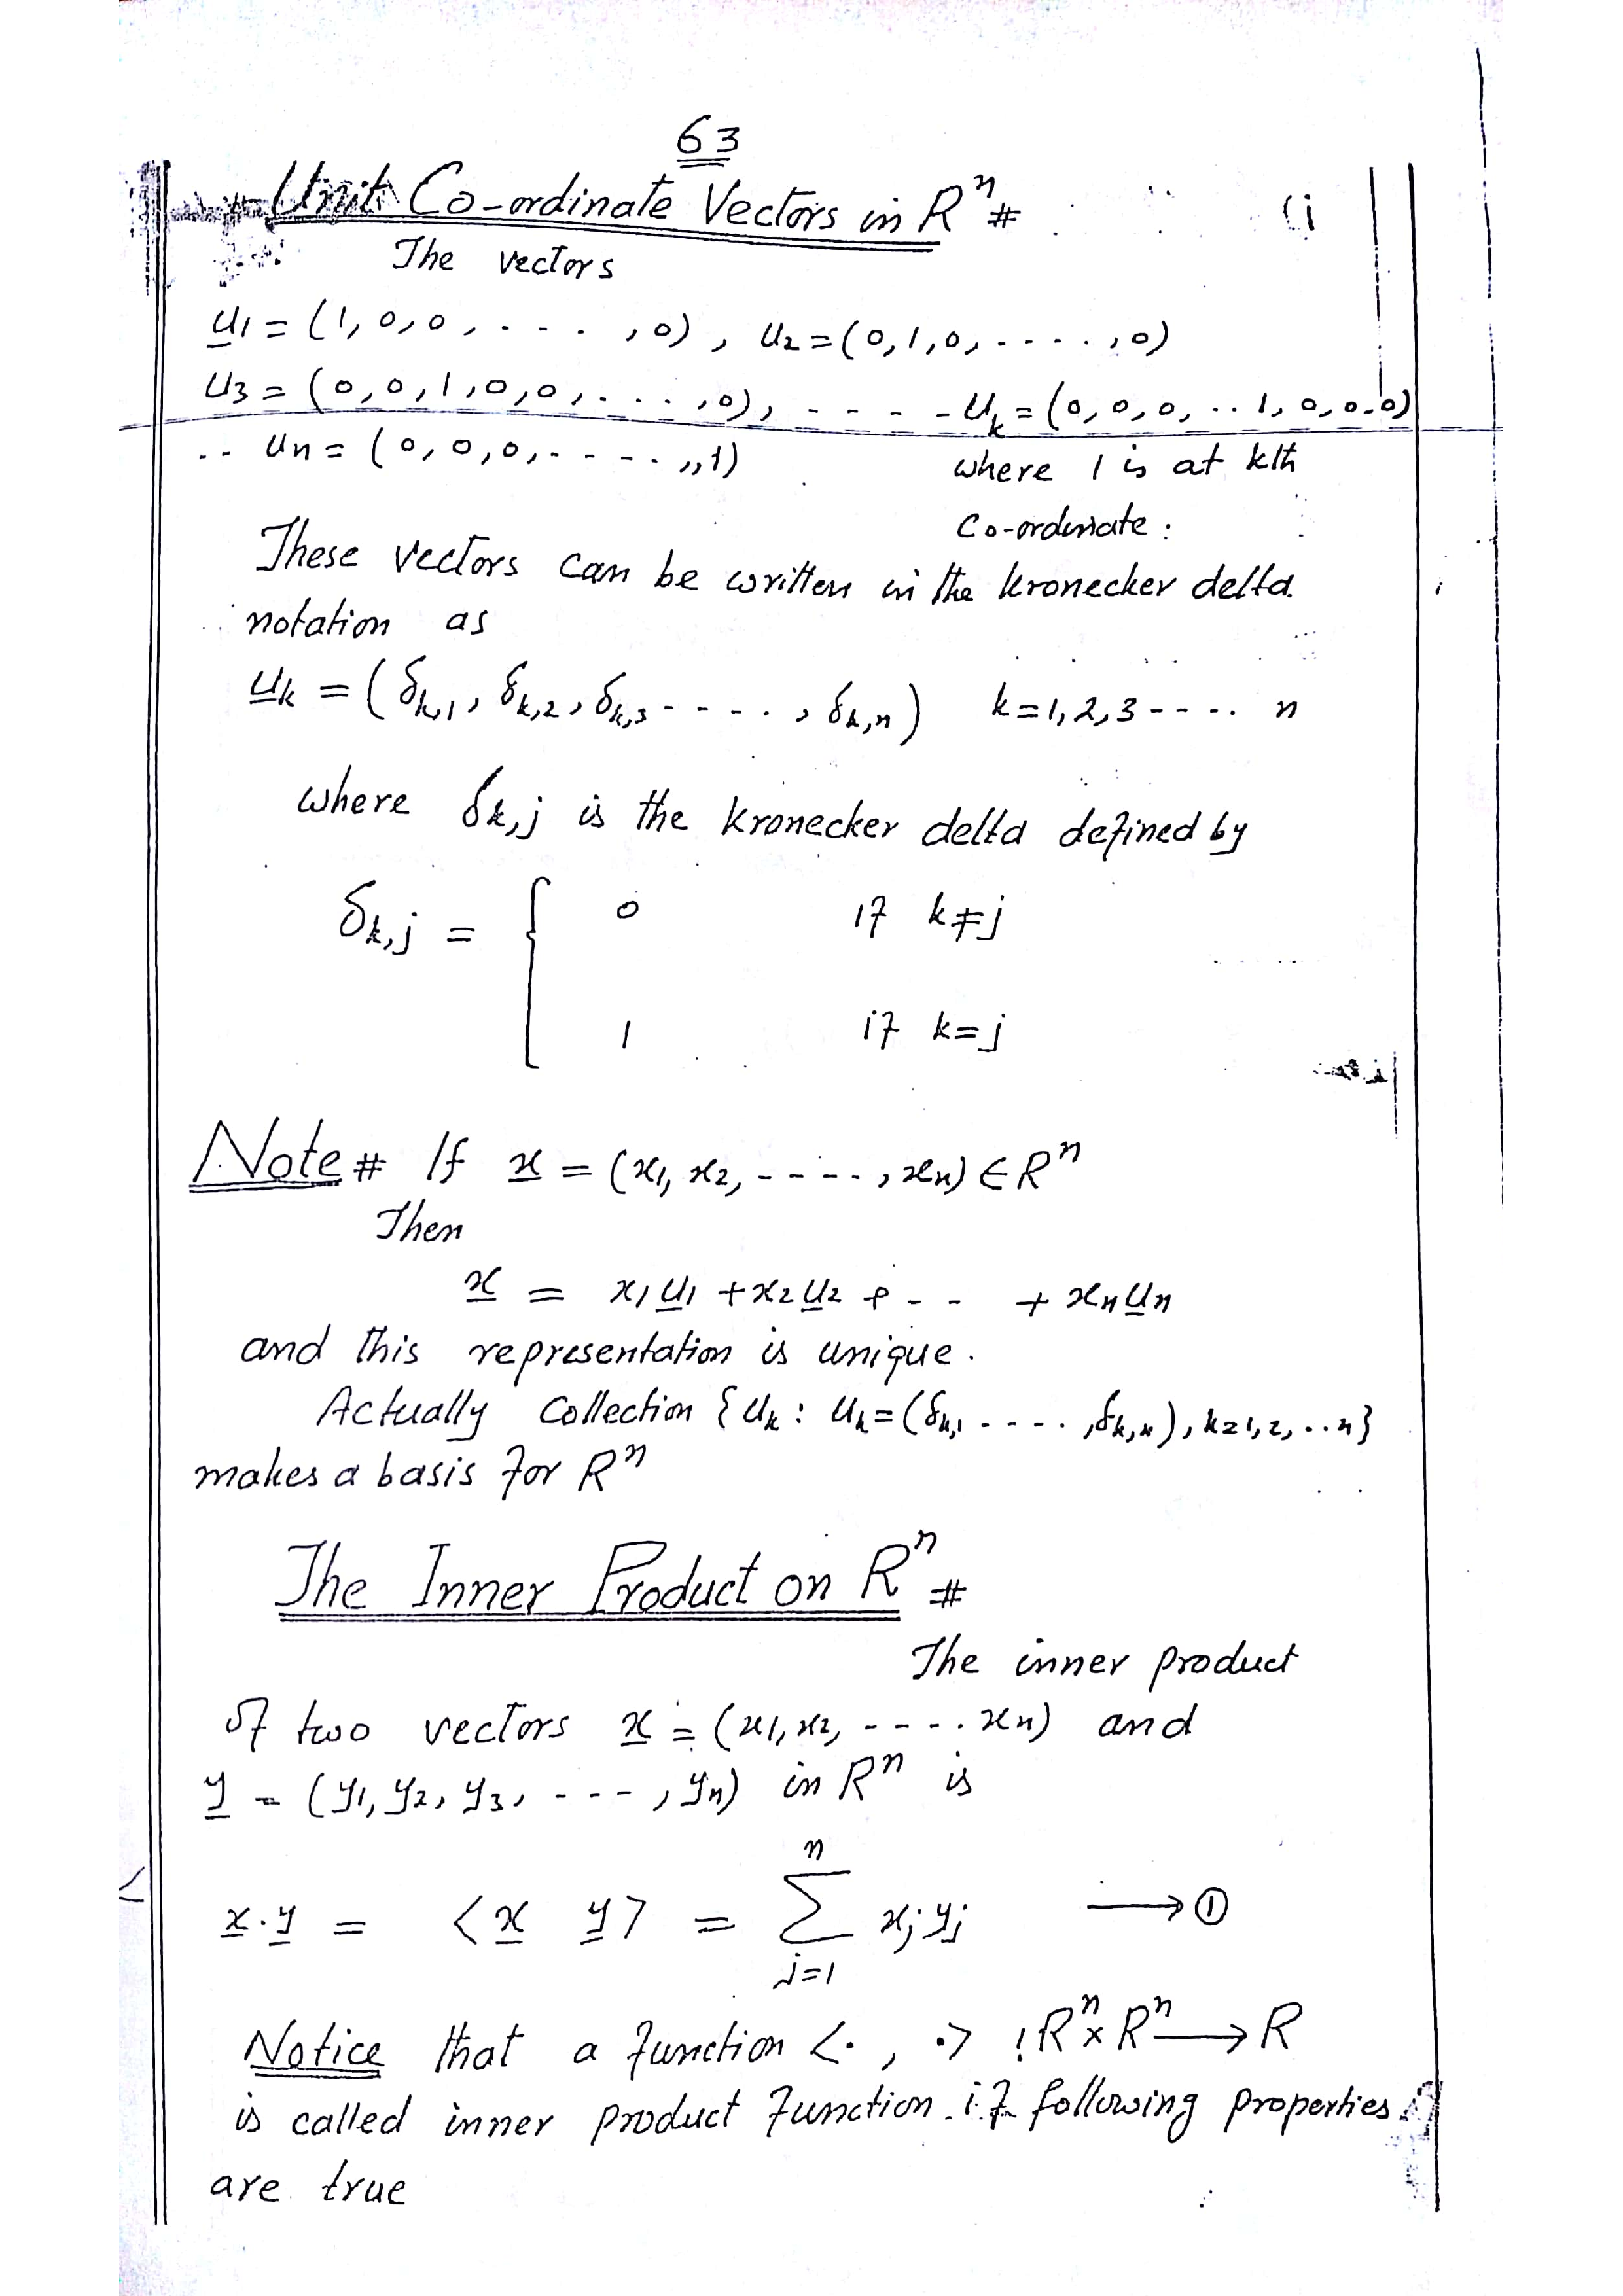 63
Unit Co-ordinate Vectors in Rⁿ #
The vectors
u̲₁ = (1, 0, 0, - - - . , 0) , u₂ = (0, 1, 0, - - - . . , 0)
u₃ = (0, 0, 1, 0, 0, . . . . , 0), - - - - u̲ₖ = (0, 0, 0, .. 1, 0, 0, 0)
.. uₙ = (0, 0, 0, - - - - . ,, 1) where 1 is at kth
Co-ordinate :
These vectors can be written in the kronecker delta
notation as
u̲ₖ = ( δₖ,₁ , δₖ,₂ , δₖ,₃ - - - - . , δₖ,ₙ ) k = 1, 2, 3 - - - . n
where δₖ,ⱼ is the kronecker delta defined by
δₖ,ⱼ = { 0 if k ≠ j
1 if k = j
Note # If x̲ = (x₁, x₂, - - - - - , xₙ) ∈ Rⁿ
Then
x̲ = x₁ u̲₁ + x₂ u̲₂ + - - + xₙ u̲ₙ
and this representation is unique.
Actually Collection { uₖ : uₖ = (δₖ,₁ - - - - , δₖ,ₙ), k = 1, 2, .. n }
makes a basis for Rⁿ
The Inner Product on Rⁿ #
The inner product
of two vectors x̲ = (x₁, x₂, - - - . xₙ) and
y̲ = (y₁, y₂, y₃, - - - - , yₙ) in Rⁿ is
x̲ . y̲ = < x̲ y̲ > = ∑ⁿⱼ₌₁ xⱼ yⱼ ⟶ ①
Notice that a function < . , . > : Rⁿ × Rⁿ ⟶ R
is called inner product function if following properties
are true